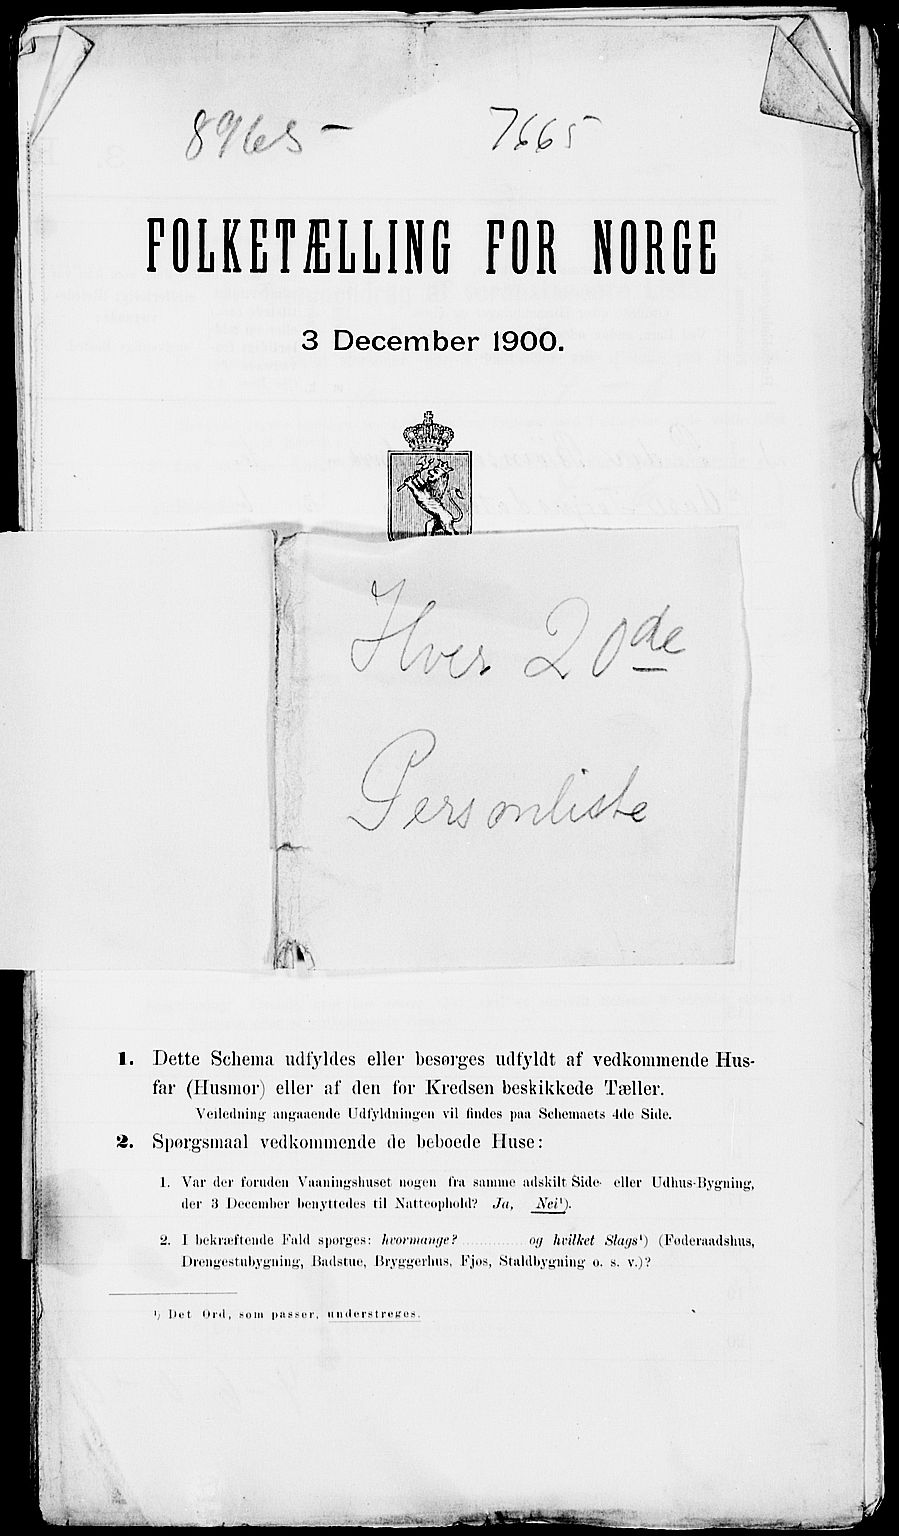 8965- 7665
FOLKETÆLLING FOR NORGE
3 December 1900.
Hver 20de
Personliste
1. Dette Schema udfyldes eller besørges udfyldt af vedkommende Hus-
far (Husmor) eller af den for Kredsen beskikkede Tæller.
Veiledning angaaende Udfyldningen vil findes paa Schemaets 4de Side.
2. Spørgsmaal vedkommende de beboede Huse:
1. Var der foruden Vaaningshuset nogen fra samme adskilt Side- eller Udhus-Bygning,
der 3 December benyttedes til Natteophold? Ja, Nei¹).
2. I bekræftende Fald spørges: hvormange? ............ og hvilket Slags¹) (Føderaadshus,
Drengestubygning, Badstue, Bryggerhus, Fjøs, Staldbygning o. s. v.)?
¹) Det Ord, som passer, understreges.